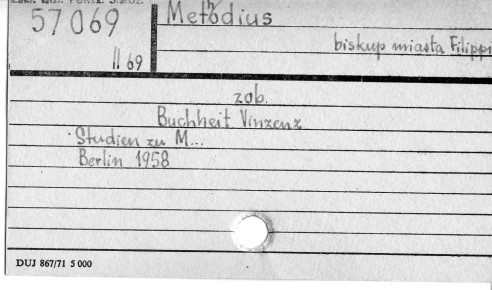 57069
II 69
Methodius
biskup miasta Filippi
zob.
Buchheit Vinzenz
Studien zu M...
Berlin 1958
DUJ 867/71 5 000